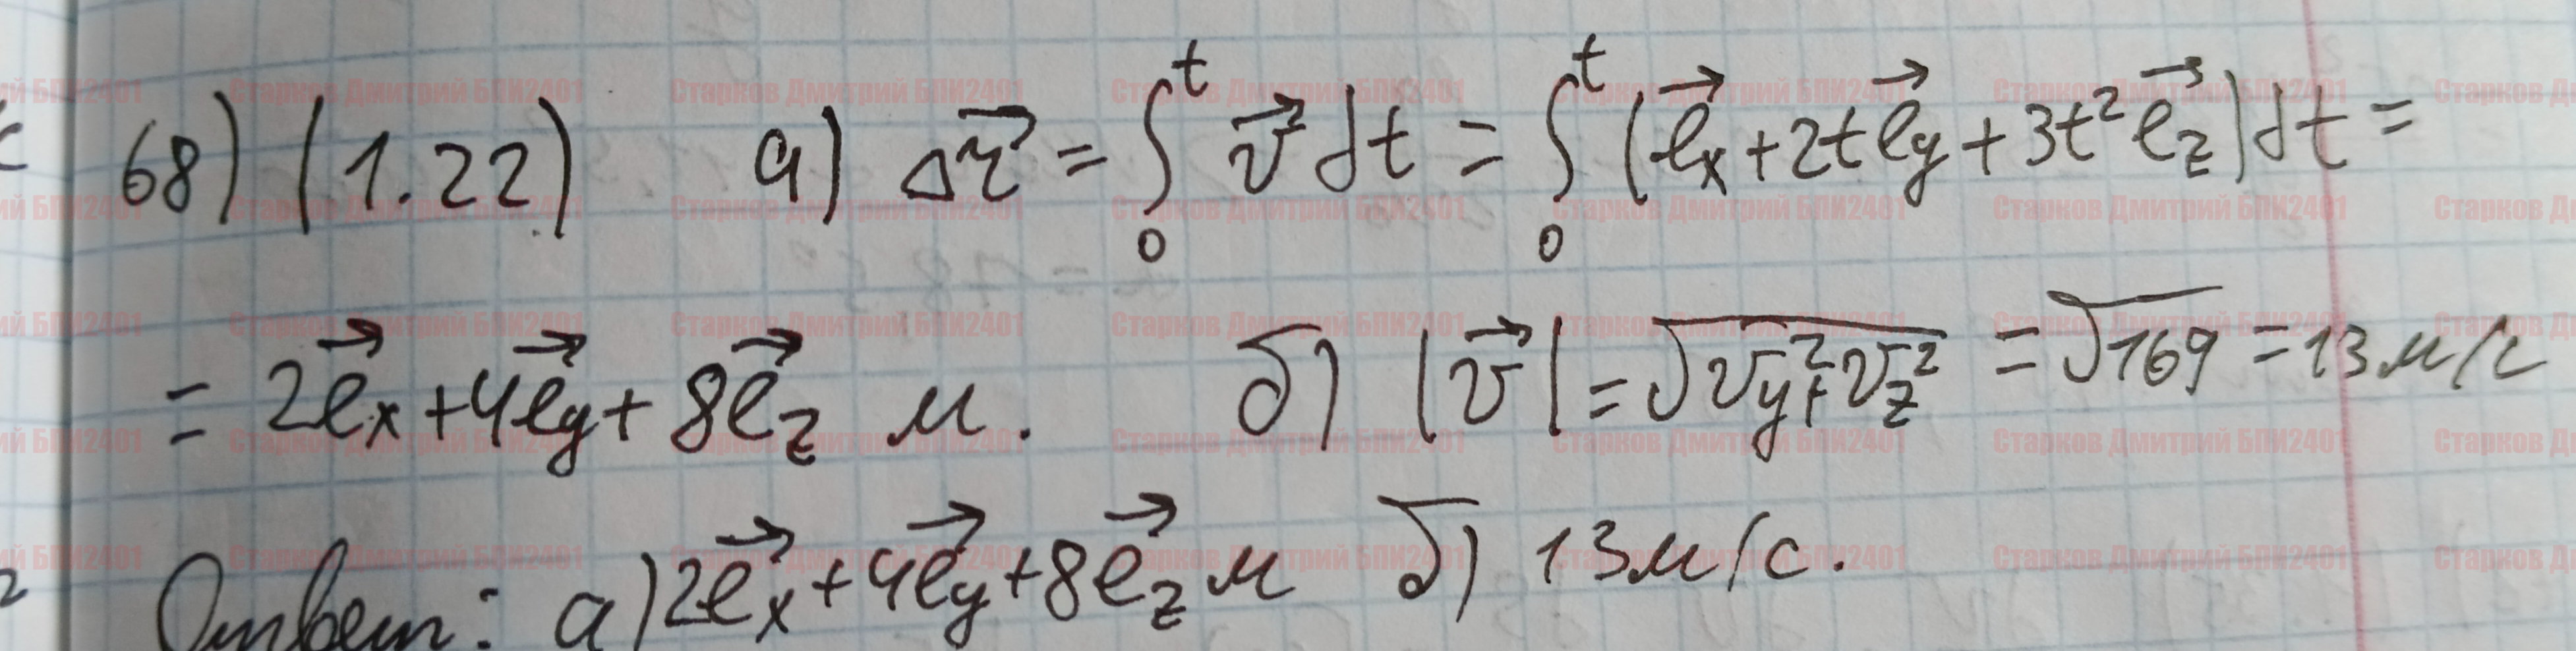 68) (1.22) а) Δr⃗ = ∫₀ᵗ v⃗ dt = ∫₀ᵗ (e⃗x + 2t e⃗y + 3t² e⃗z) dt =
= 2e⃗x + 4e⃗y + 8e⃗z м. б) |v⃗| = √(vy² + vz²) = √169 = 13 м/с
Ответ: а) 2e⃗x + 4e⃗y + 8e⃗z м б) 13 м/с.
Старков Дмитрий БПИ2401